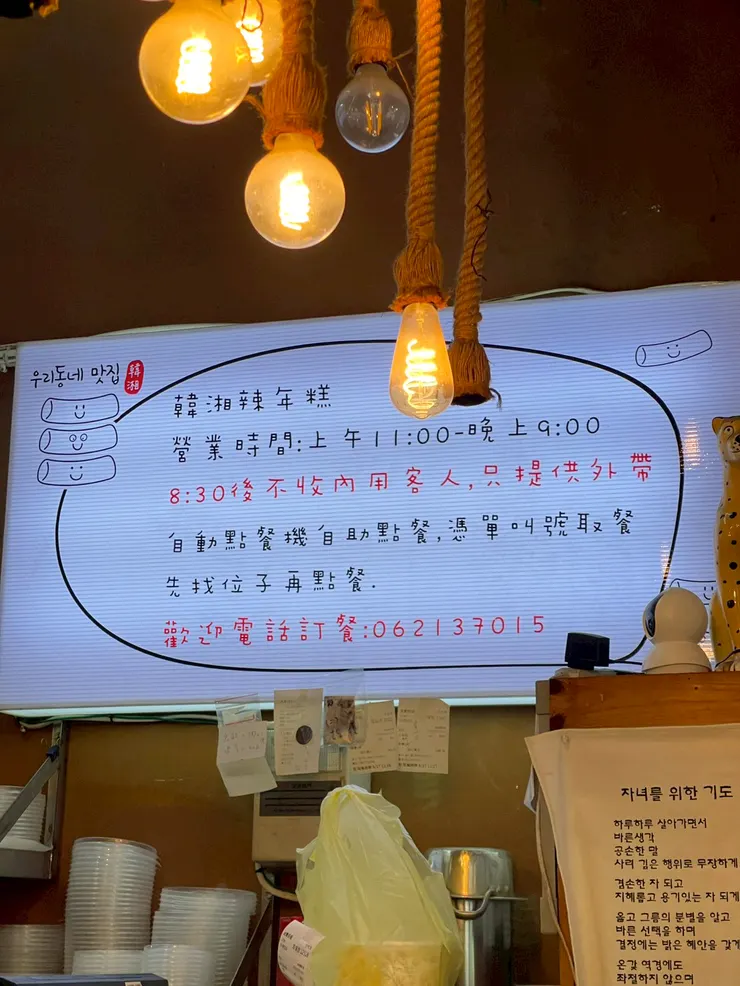 우리동네 맛집
韓湘
韓湘辣年糕
營業時間:上午11:00-晚上9:00
8:30後不收內用客人,只提供外帶
自動點餐機自助點餐,憑單叫號取餐
先找位子再點餐.
歡迎電話訂餐:062137015
자녀를 위한 기도
하루하루 살아가면서
바른생각
공손한 말
사려 깊은 행위로 무장하게
겸손한 자 되고
지혜롭고 용기있는 자 되게
옳고 그름의 분별을 알고
바른 선택을 하며
결정에는 밝은 혜안을 갖게
온갖 역경에도
좌절하지 않으며